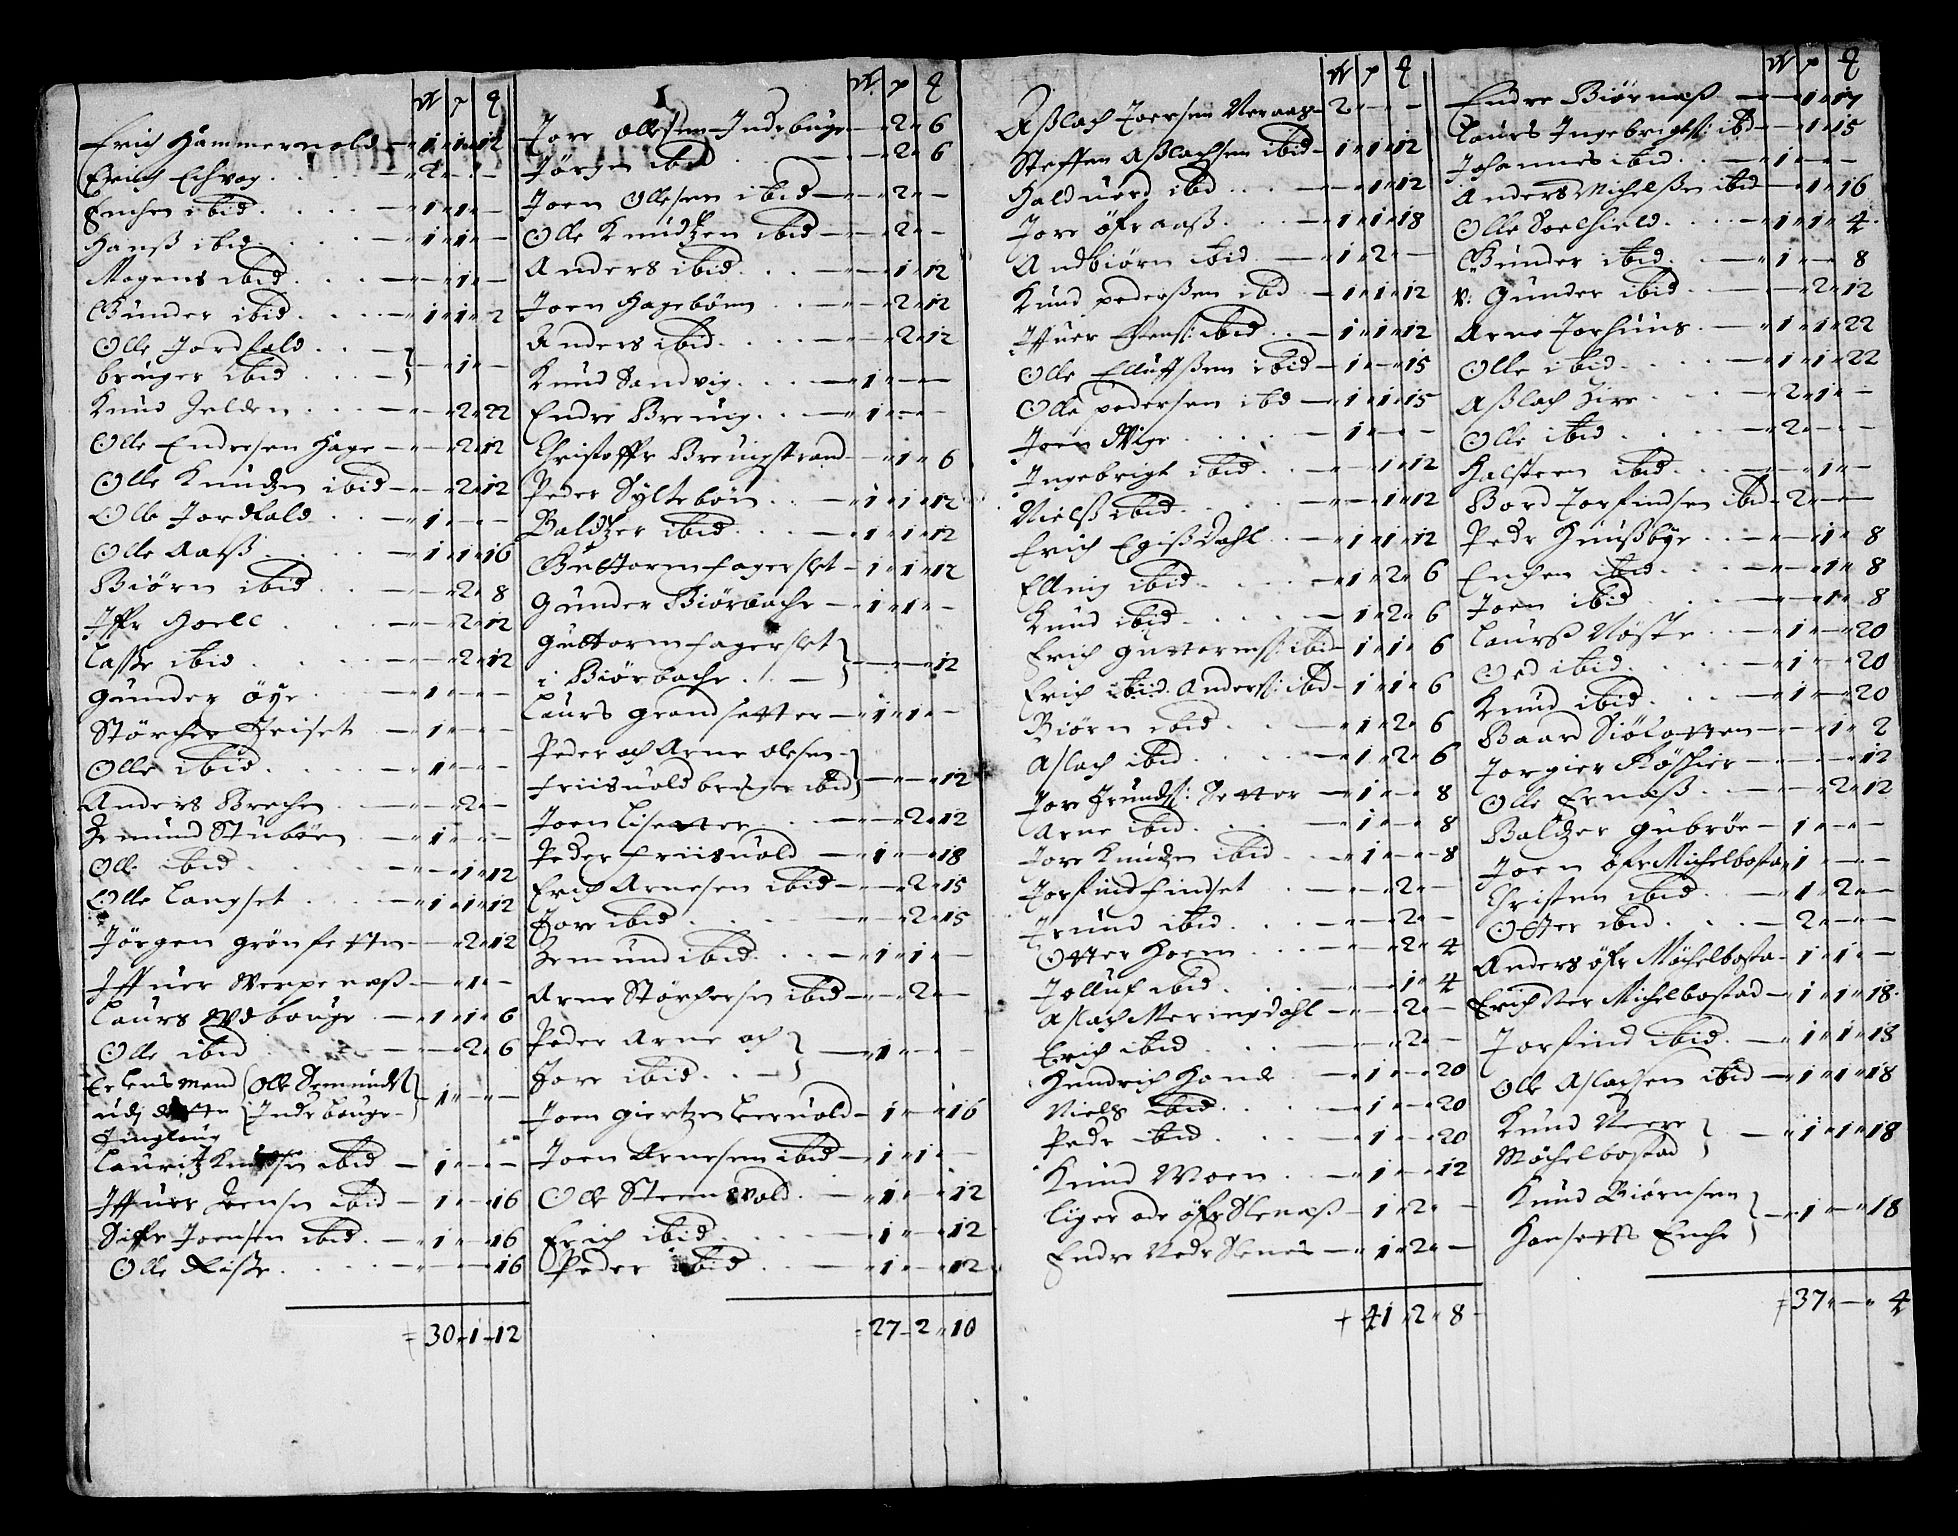 W p ℔
Erich Hammeruold — 1 " 1 " 12
Erich Echvog . . . . — " 2 " — " —
Enchen ibid . . . . — " 1 " 1 " —
Hanß ibid . . . — " 1 " 1 " —
Mogens ibid . . . — " — " 1 " —
Gunder ibid . . . — " 1 " 1 " 2
Olle Jordfald . . —
bruger ibid . . . — } — " 1 " —
Knud Jelden . . . — " — 2 " 22
Olle Endresen Hage — " — 2 " 12
Olle Knudzen ibid — " — 2 " 12
Olle Jordfald . . . — 1 " — " —
Olle Aaß . . . . — 1 " 1 " 16
Biörn ibid . . — " — 2 " 8
Iffr Hoell . . . — " — 2 " 12
Laße ibid . . . . — " — 2 " 12
Gunder öye . . . — " 1 " — " —
Störcher Friset — " 1 " — " —
Olle ibid . . . . — " 1 " — " —
Anders Brechen . . — " — 2 " —
Semund Stuböen . — " 1 " — " —
Olle ibid . . . . — " — " 1 " 12
Olle Langset . . . — " 1 " 1 " 12
Jörgen grönsetten — " — 2 " 12
Iffuer Werpenæß — " — " 1 " —
Laurs Wdbouge . — " 1 " 1 " 6
Olle ibid . . . — " — 2 " 6
Lehensmend { Olle Semunds:
Indbouge } — 1 " — " —
Tinglaug
Lauritz Knudsen ibid — 1 " — " —
Iffuer Jensen ibid — 1 " — " 16
Siffr Joensen ibid . — 1 " — " 16
Olle Riße . . . . — " — " — 16
= 30 " 1 " 12
W p ℔
Jore Ollesen Indbuge — " 2 " 6
Jörgen ibid . . . — " 2 " 6
Joen Ollesen ibid — " — 2 " —
Olle Knudtzen ibid — " — 2 " —
Anders ibid . . . — " — " 1 " 12
Joen Hagebönn . . — " — 2 " 12
Anders ibid . . . . — " — 2 " 12
Knud Sandvig . . . — " 1 " — " —
Endre Breuig . . . — " 1 " — " —
Christoffr Breuigstrand — " 1 " 6
Peder Sylteböen . . — " 1 " 1 " 12
Baldtzer ibid . . . — " 1 " 1 " 12
Guttorm fagerslet — 1 " 1 " 12
Gunder Biörbache — " 1 " 1 " —
Guttorm fagerslet
i Biörbache . . — } — " — " 12
Laurs Grandsetter — " 1 " 1 " —
Peder och Arne olesen
friisuold bruger ibid } — " — " 12
Joen Lisetter . . — " — 2 " 12
Peder friisuold — " 1 " — " 18
Erich Arnesen ibid — " — 2 " 15
Jore ibid . . . . — " — 2 " 15
Semund ibid . . . — " 1 " 1 " —
Arne Störchersen ibid — " — 2 " —
Peder Arne och
Jore ibid . . — } — " 1 " — " —
Joen Giertzen Leeruold — 1 " — " 16
Joen Arnesen ibid — " 1 " 1 " —
Olle Steensvold . — " 1 " — " 12
Erich ibid . . . . — " 1 " — " 12
Peder ibid . . . — " 1 " — " 12
= 27 — 2 " 10
W p ℔
Aßlach Joersen Veraas — 2 " — " —
Steffen Aßlachsen ibid — 1 " 1 " 12
Halduerd ibd . . . — " — " 1 " 12
Jore öfr aaß . . . — " 1 " 1 " 18
Andbiörn ibid . — " 1 " 2 " —
Knud pederßen ibd — 1 " 1 " 12
Iffuer Ifuers: ibid . . — 1 " 1 " 12
Olle Elluffßen ibid — 1 " — " 15
Olle pedersen ibd — 1 " 1 " 15
Joen Wige . . . . — 1 " — " —
Ingebrigt ibid . . " — " 1 " 12
Nielß ibid . . . . " — " 1 " 12
Erich Egißdahl . . — " 1 " 1 " 12
Elling ibid . . . . — " 1 " 2 " 6
Knud ibid . . . . — 1 " 2 " 6
Erich Guttormß: ibid — 1 " 1 " 6
Erich ibid. Anderß: ibd — 1 " 1 " 6
Biörn ibid . . . — " 1 " 2 " 6
Aslach ibid . . . — " 1 " 2 " 6
Jore Trunds: Setter — " 1 " — " 8
Arne ibid . . . — " 1 " — " 8
Jore Knudzen ibid . . — " 1 " — " 8
Torfind findset . . — " — 2 " —
Trund ibid . . . — " — 2 " —
Otter Hoem . . . — " — 2 " 4
Tolluf ibid . . . — " — " 1 " 4
Aslach Meringdahl — " — 2 " —
Erich ibid . . . — " — 2 " —
Hendrich Hande . . — " 1 " — " 20
Niels ibid . . . . — " 1 " — " 20
Pedr ibid . . . . — " 1 " — " 20
Knud Moen . . — " 1 " — " 12
Liger öde öfr Slenæß — 1 " 2 " —
Endre Nedr Slenes — " 1 " 2 " —
+ 41 " 2 " 8 —
W p ℔
Endre Biörnæß — " — " 1 " 17
Laurs Ingebrigtß: ibd — " — " 1 " 15
Johannes ibid . . — " 1 " — " —
Anders Nichelßen ibid — " — " 1 " 16
Olle Soelhield . . . — " 1 " 1 " 4
Gunder ibid . . — " 1 " — " 8
V: Gunder ibid . . — " — " 2 " 12
Arne Torhuus . . — " 1 " 1 " 22
Olle ibid . . . . — " 1 " 1 " 22
Aßlach Lire . . . . — " 2 " 1 " —
Olle ibid . . . . — " 2 " — " —
Halsteen ibid . . . — " — " 1 " —
Bord Torfindsen ibid — 2 " — " —
Pedr Huußbye . . — " — " 1 " 8
Enchen ibid . . . — " — " 1 " 8
Joen ibid . . . . — " — " 1 " 8
Laurß Nöste . . — " 1 " — " 20
Oed ibid . . . . — " 1 " — " 20
Knud ibid . . . — " 1 " — " 20
Baard Siölotten — " — " 1 " 2
Jorgier Röshier — " — " — " 12
Olle Ernæß . . . — " — 2 " 12
Baldtzer Gubröe — 1 " — " —
Joen öfr Michelbosta — 1 " — " —
Christen ibid . . . — 1 " 2 " —
Otter ibid . . . . — 2 " — " —
Anders öfr Möchelbosta — 1 " 1 " —
Erich Ner Michelbostad — 1 " 1 " 18
Torfind ibid . . — " 1 " 1 " 18
Olle Aslachsen ibid — " 1 " 1 " 18
Knud Neere
Möchelbostad } — " 1 " 1 " 18
Knud Biörnsen
Hansetts Enche } — " 1 " — " 18
= 37 " — " 4